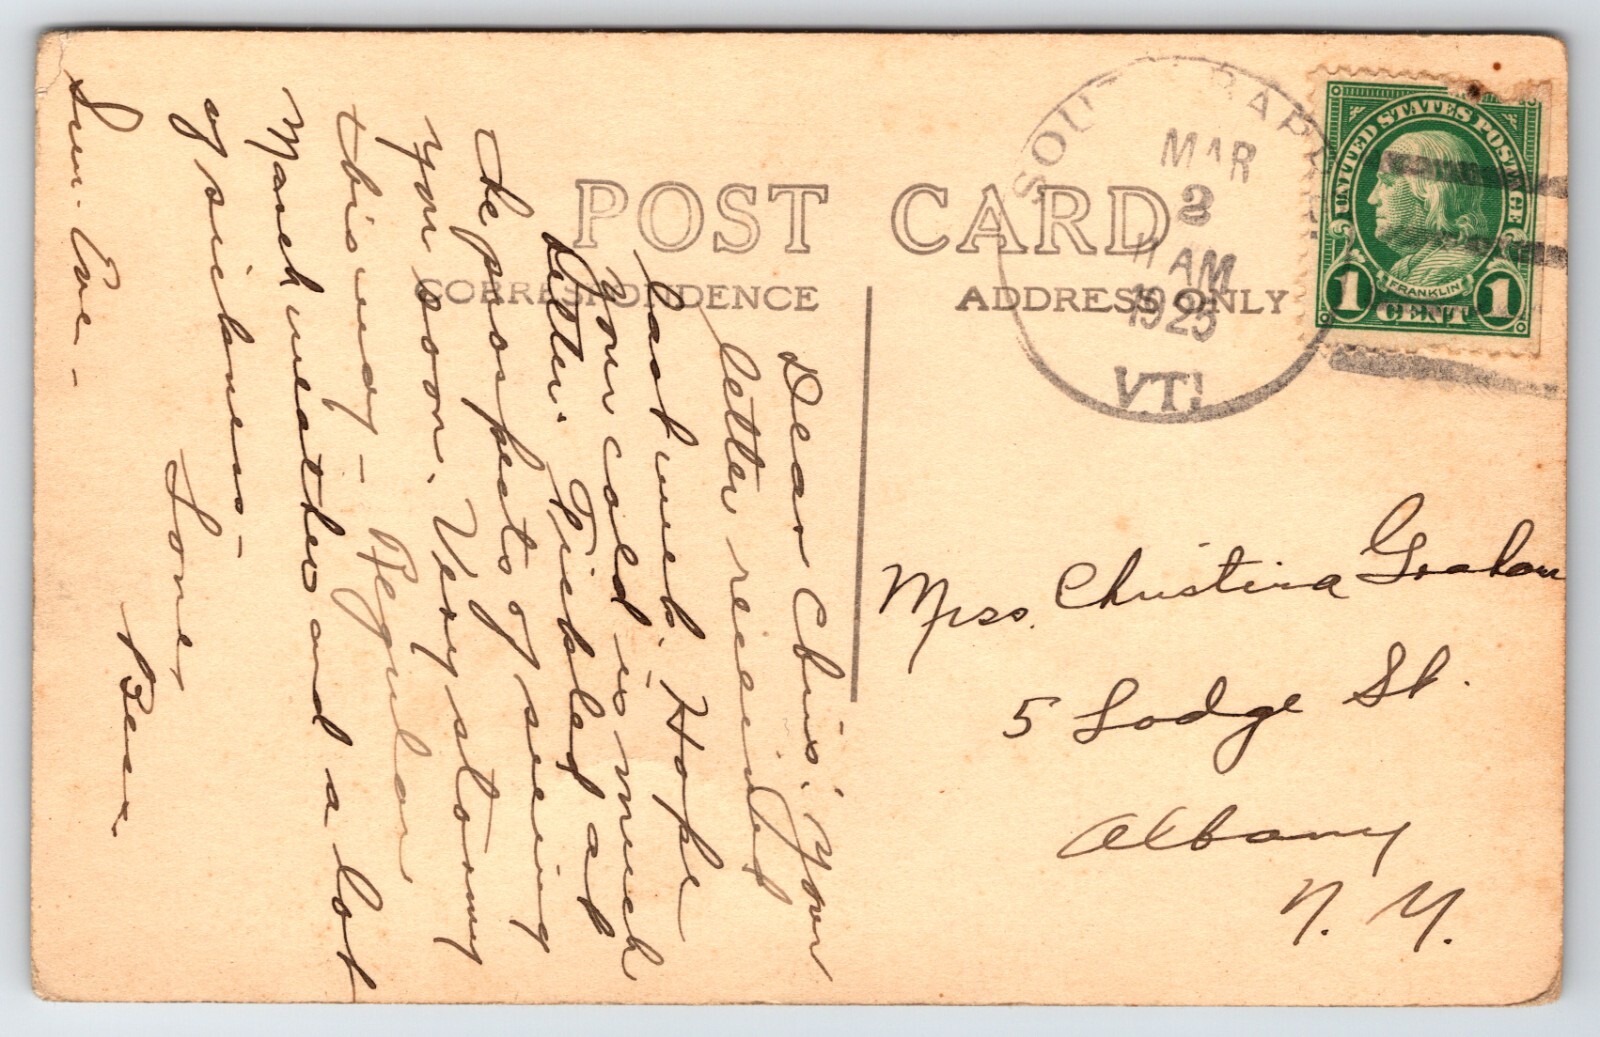 POST CARD
CORRESPONDENCE
ADDRESS ONLY
SOUTH
MAR
2
11 AM
1925
VT.
UNITED STATES POSTAGE
FRANKLIN
1 CENT 1
Dear Chris: Your
letter received
last week. Hope
your cold is much
better. Tickled at
the prospects of seeing
you soon. Very stormy
this way - Regular
March weather and a lot
of sickness -
Love,
Bess.
Sun. Eve -
Miss. Christina Graham
5 Lodge St.
Albany
N. Y.